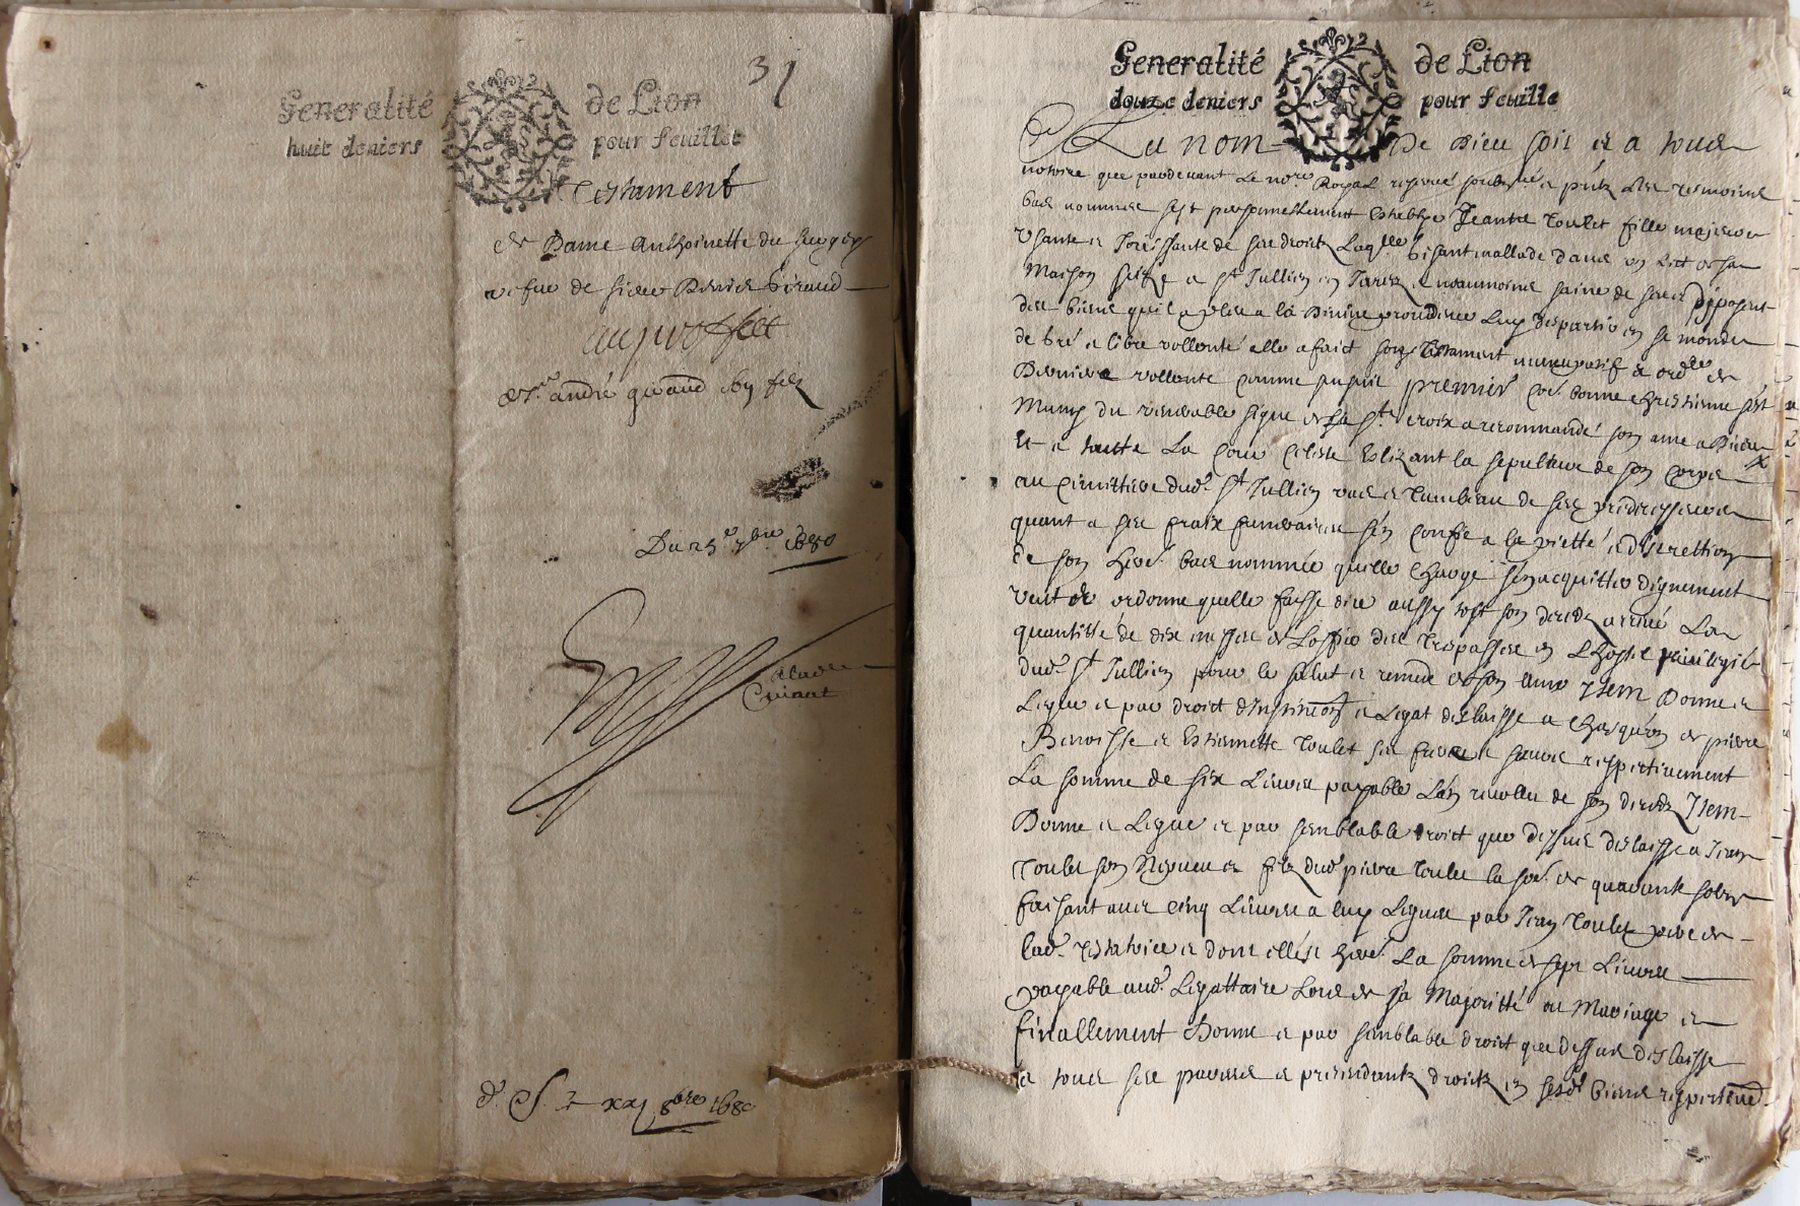 31
Generalité de Lion
huit deniers pour feuillet
Testament
de Dame Anthoinette du
vefve de sieur Giraud
au proffict
de Sr. andré giraud son filz
Du 25e 7bre 1680
xxj 8bre 1680
Generalité de Lion
douze deniers pour feuille
Au nom de Dieu soit et a tous
notoire que pardevant le nore. Royal reservé soubzne. et pntz les tesmoins
bas nommes sest personnellement establye Jeanne Toulet fille majeure
usante et joüissante de ses droictz laqlle. gisant mallade dans un lict de sa
maison size a St Jullien en Jarez neanmoins saine de sens disposant
des biens quil a pleu a la Divine providence luy despartir en se monde
de gré et libre vollonté elle a faict son testament nuncupatif et ordre. de
derniere vollonté comme sensuit premier coe. bonne chrestienne sest
muny du venerable signe de la Ste. croix a recommandé son ame a Dieu
et a toutte la cour celeste Eslizant la sepulture de son corps
au cimittiere dud. St Jullien vas et tumbeau de ses predecesseurs
quant a ses fraix funeraires sen confie a la pietté et discrettion
de son here. bas nommée quelle charge sen acquitter dignement
veut et ordonne quelle fasse dire aussy tost son decedz arrivé la
quantitté de dix messes de loffice des trespasses en lhostel privilegié
dud. St Jullien pour le salut et remede de son ame Item Donne et
legue et par droict dinstitution et legat deslaisse a chascun de pierre
Benoisse et Estiennette Toulet ses frere et sœurs respectivement
la somme de six livres payable lan revollu de son decedz Item
Donne et legue et par semblable droict que dessus deslaisse a Jean
Toulet son Nepveu et filz dud. pierre Toulet la soe. de quarante solz
faisant avec cinq livres a luy legues par Jean Toulet pere de
lad. testatrice et dont elle est here. la somme de sept livres
payable aud. Legattaire lors de sa Majoritté ou Mariage et
finallement donne et par semblable droict que dessus deslaisse
a tous ses parens et pretendantz droictz en sesd. biens